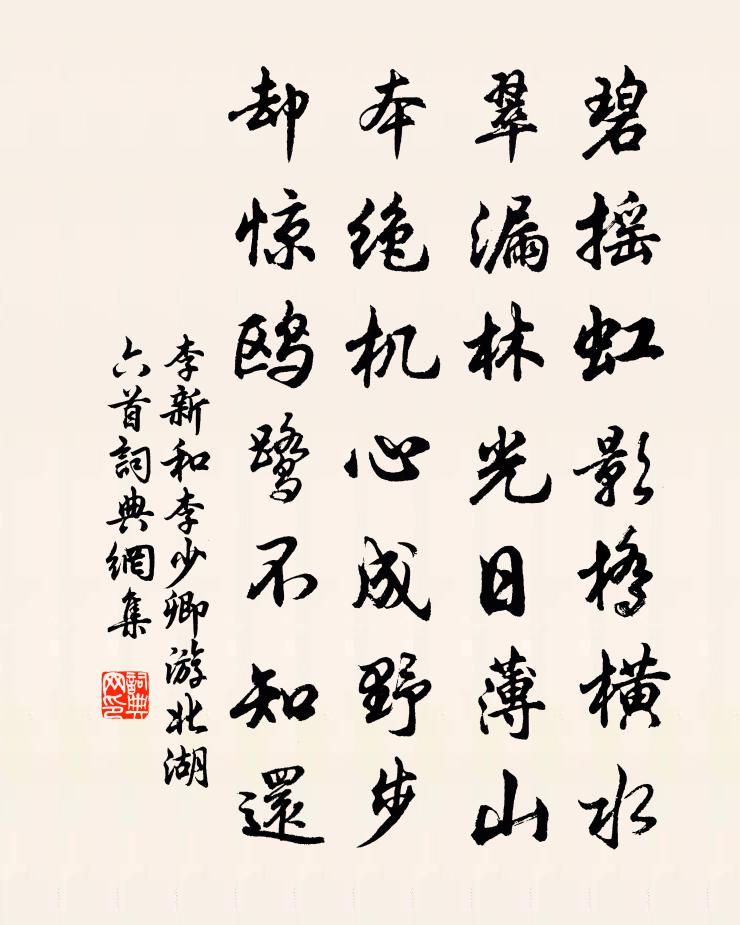 碧摇虹影桥横水
翠漏林光日薄山
本绝机心成野步
却惊鸥鹭不知還
李新和李少卿游北湖
六首詞典網集
詞典
网印